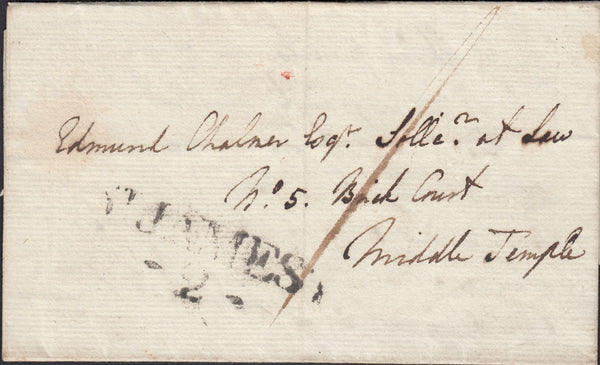 Edmund Chalmer Esqr. Sollicr. at Law
No. 5. Brick Court
Middle Temple
St JAMES'S
- 2 -